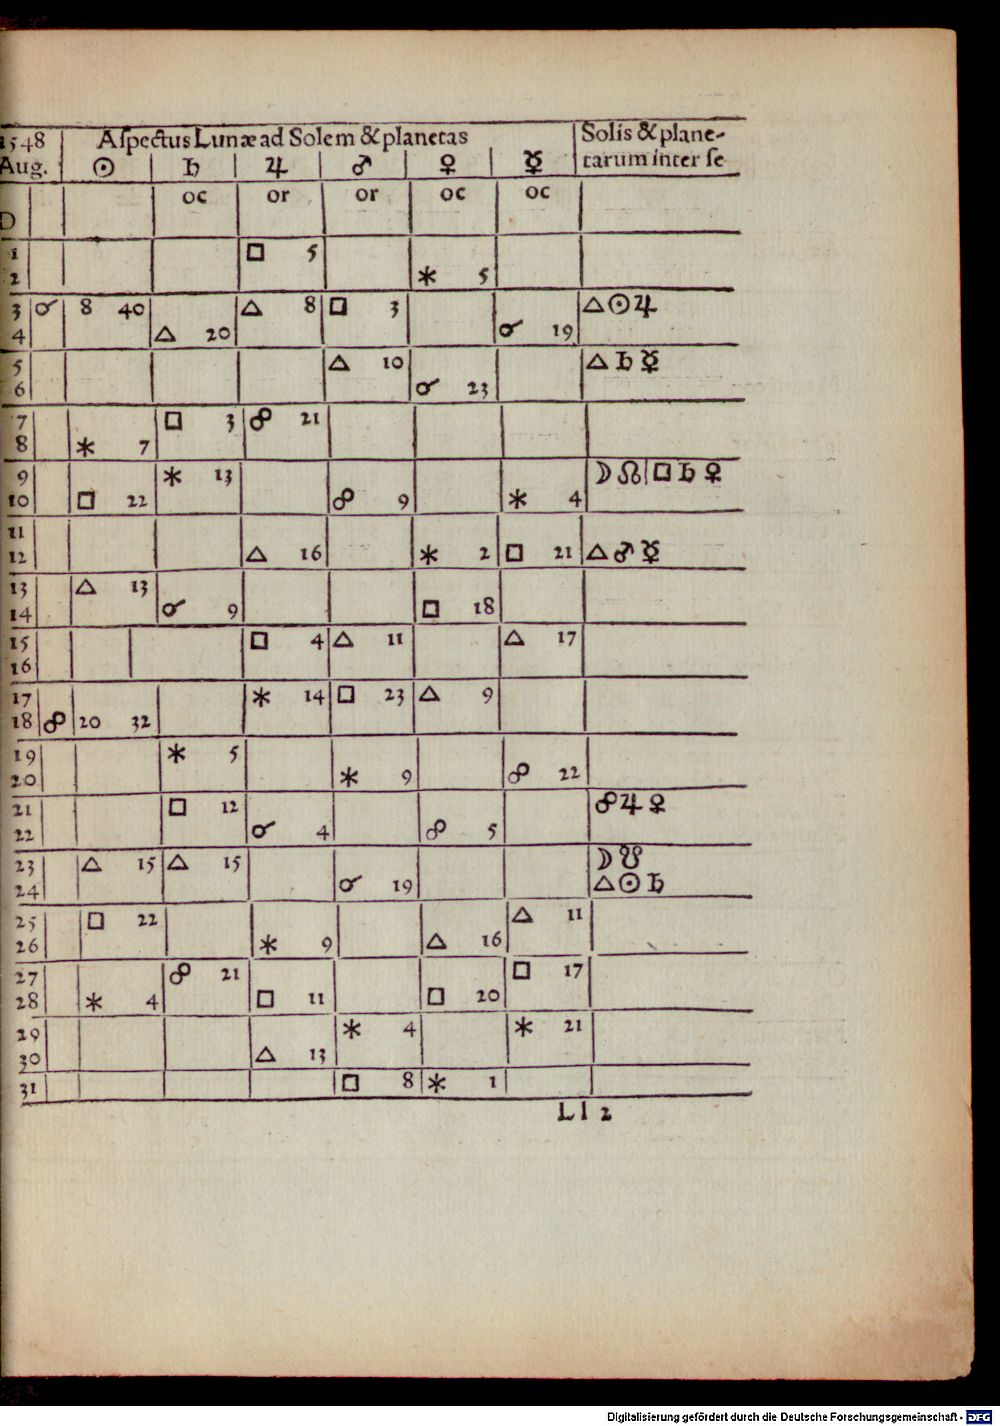 1548 Aſpectus Lunæ ad Solem & planetas Solis & plane-
Aug. ☉ ♄ ♃ ♂ ♀ ☿ tarum inter ſe
D oc or or oc oc
1 □ 5
2 ⚹ 5
3 ☌ 8 40 △ 8 □ 3 △ ☉ ♃
4 △ 20 ☌ 19
5 △ 10 △ ♄ ☿
6 ☌ 23
7 □ 3 ☍ 21
8 ⚹ 7
9 ⚹ 13 ☽ ☊ □ ♄ ♀
10 □ 22 ☍ 9 ⚹ 4
11
12 △ 16 ⚹ 2 □ 21 △ ♂ ☿
13 △ 13
14 ☌ 9 □ 18
15 □ 4 △ 11 △ 17
16
17 ⚹ 14 □ 23 △ 9
18 ☍ 20 32
19 ⚹ 5
20 ⚹ 9 ☍ 22
21 □ 12 ☍ ♃ ♀
22 ☌ 4 ☍ 5
23 △ 15 △ 15 ☽ ☋
24 ☌ 19 △ ☉ ♄
25 □ 22 △ 11
26 ⚹ 9 △ 16
27 ☍ 21 □ 17
28 ⚹ 4 □ 11 □ 20
29 ⚹ 4 ⚹ 21
30 △ 13
31 □ 8 ⚹ 1
L l 2
Digitalisierung gefördert durch die Deutsche Forschungsgemeinschaft - DFG